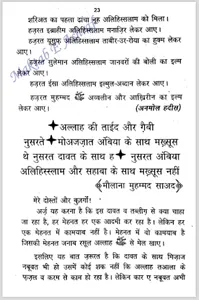 23
शरीअत का पहला ढांचा नूह अलिहिस्सलाम को मिला।
हज़रत इब्राहीम अलिहिस्सलाम मनाज़िर लेकर आए।
हज़रत यूसुफ अलिहिस्सलाम ताबीर-उर-रोया का हुक्म लेकर
आए।
हज़रत सुलेमान अलिहिस्सलाम जानवरों की बोली का इल्म
लेकर आए।
हज़रत ईसा अलिहिस्सलाम इल्मुल-अब्दान लेकर आए।
हज़रत मुहम्मद ﷺ अव्वलीन और आख़िरीन का इल्म
लेकर आए।
(अनमोल हदीस)
अल्लाह की ताईद और ग़ैबी
नुसरते मोअजज़ात अंबिया के साथ मख़्सूस
थे नुसरत दावत के साथ ह नुसरत अंबिया
अलिहिस्सलाम और सहाबा के साथ मख़्सूस नहीं
मौलाना मुहम्मद साअद
मेरे दोस्तों और बुज़र्गो!
अर्ज़ यह करना है कि इस दावत व तब्लीग़ से क्या चाहा
जा रहा है, हर मेहनत हर एक आदमी कर रहा है। लेकिन हर
एक मेहनत में कामयाब नहीं है। मेहनत में वो कामयाब है
जिसकी मेहनत जनाब रसूल अल्लाह ﷺ से मेल खाए।
इसलिए यह बात ज़रूरत है कि दावत के साथ मिजाज
नबूवत भी हो उसमें कोई शक नहीं कि अल्लाह तआला के
फ़ज़्ल व करम से काम हो रहा है। लेकिन कार ए नबूवत अभी